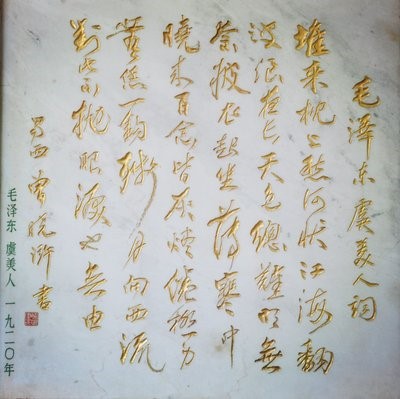 毛泽东虞美人词
堆来枕上愁何状江海翻
波浪夜长天色總難明無
奈披衣起坐薄寒中
晓来百念皆灰烬倦极身
無凭一钩残月向西流
對此不抛眼泪也無由
蜀西曾晓浒書
毛泽东 虞美人 一九二〇年